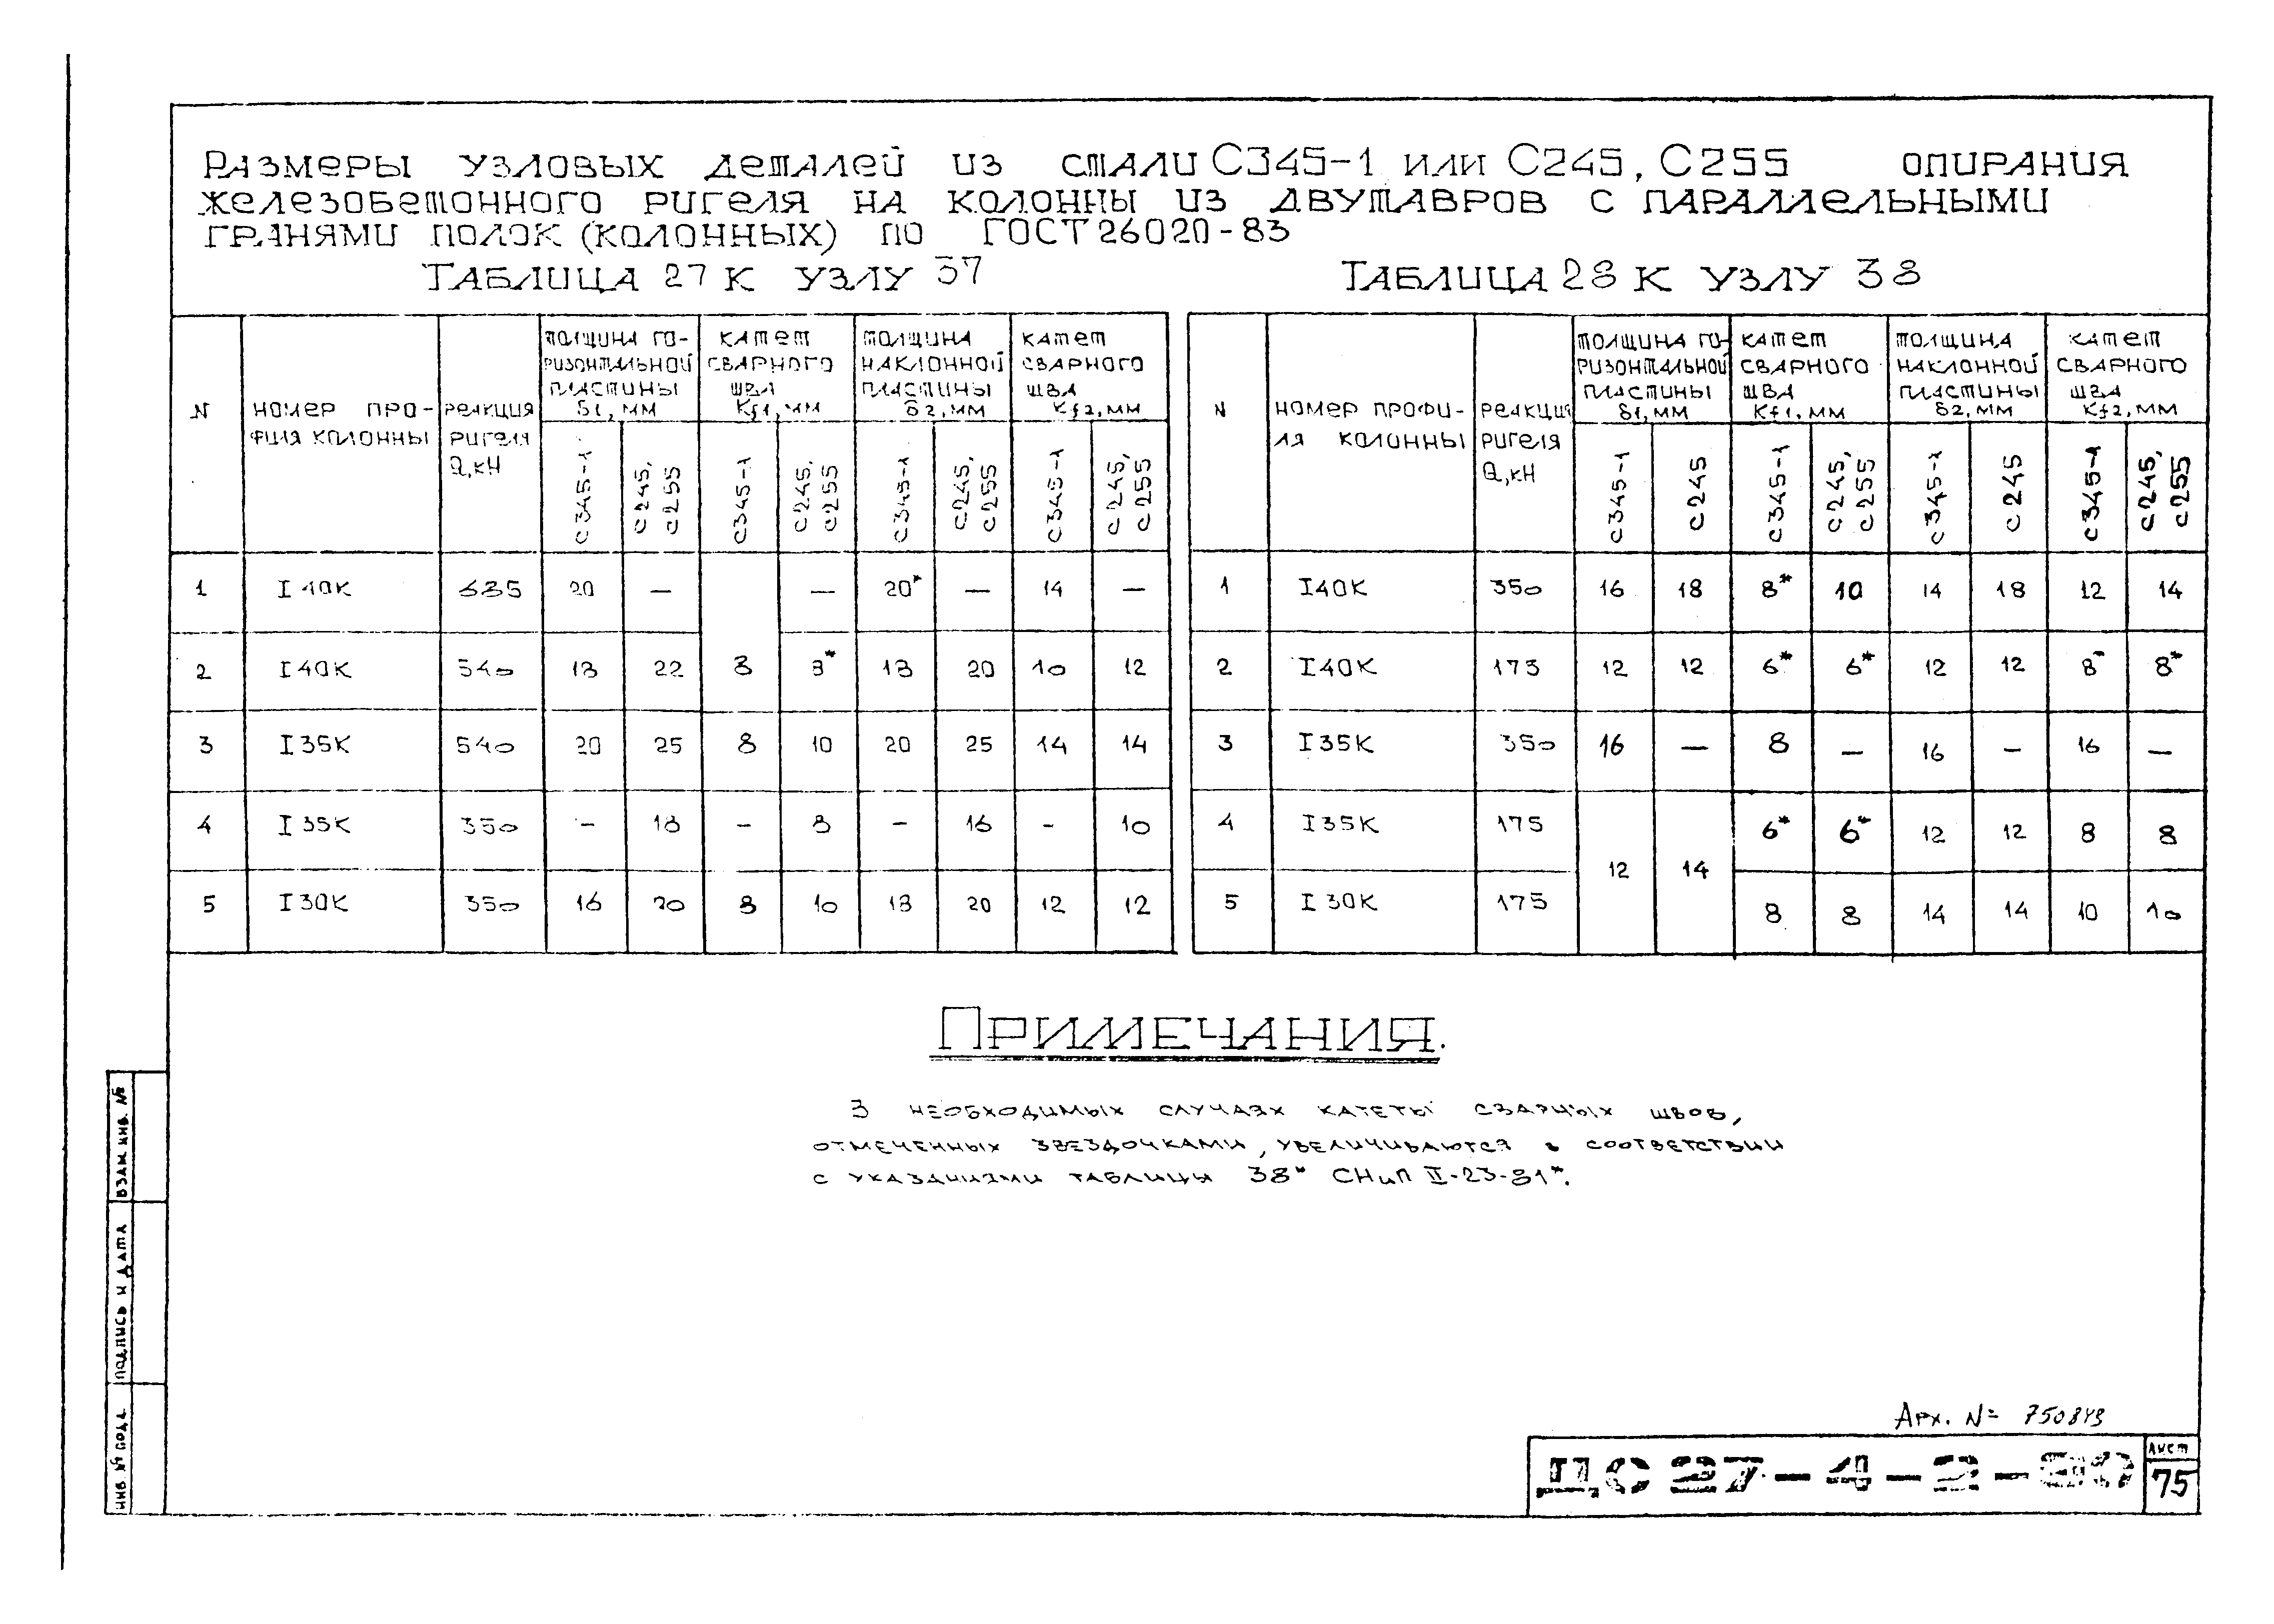 Размеры узловых деталей из стали С345-1 или С245, С255 опирания
железобетонного ригеля на колонны из двутавров с параллельными
гранями полок (колонных) по ГОСТ 26020-83
Таблица 27 к узлу 37
N | номер про-филя колонны | реакция ригеля Q,кН | толщина го-ризонтальной пластины δ1, мм | катет сварного шва Kf1, мм | толщина наклонной пластины δ2, мм | катет сварного шва Kf2, мм
С345-1 | С245, С255 | С345-1 | С245, С255 | С345-1 | С245, С255 | С345-1 | С245, С255
1 | I 40К | 635 | 20 | — | — | 20* | — | 14 | —
2 | I 40К | 540 | 18 | 22 | 8 | 8* | 18 | 20 | 10 | 12
3 | I 35К | 540 | 20 | 25 | 8 | 10 | 20 | 25 | 14 | 14
4 | I 35К | 350 | – | 18 | – | 8 | – | 16 | – | 10
5 | I 30К | 350 | 16 | 20 | 8 | 10 | 18 | 20 | 12 | 12
Таблица 28 к узлу 38
N | номер профи-ля колонны | реакция ригеля Q,кН | толщина го-ризонтальной пластины δ1, мм | катет сварного шва Kf1, мм | толщина наклонной пластины δ2, мм | катет сварного шва Kf2, мм
С345-1 | С245 | С345-1 | С245, С255 | С345-1 | С245 | С345-1 | С245, С255
1 | I40К | 350 | 16 | 18 | 8* | 10 | 14 | 18 | 12 | 14
2 | I40К | 175 | 12 | 12 | 6* | 6* | 12 | 12 | 8* | 8*
3 | I35К | 350 | 16 | — | 8 | — | 16 | — | 16 | —
4 | I35К | 175 | 12 | 14 | 6* | 6* | 12 | 12 | 8 | 8
5 | I 30К | 175 | 8 | 8 | 14 | 14 | 10 | 10
Примечания.
В необходимых случаях катеты сварных швов,
отмеченных звездочками, увеличиваются в соответствии
с указаниями таблицы 38* СНиП II-23-81*.
Взам. инв. №
Подпись и дата
Инв. № подл.
Арх. N= 750849
ДС 27-4-2-90
Лист
75